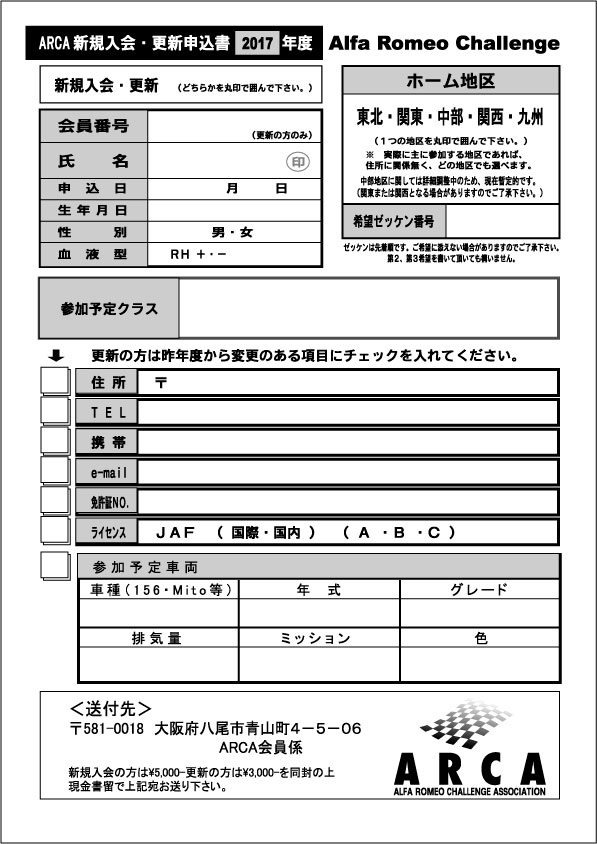 ARCA 新規入会・更新申込書 2017 年度 Alfa Romeo Challenge
新規入会・更新 (どちらかを丸印で囲んで下さい。)
会員番号 (更新の方のみ)
氏 名 印
申 込 日 月 日
生 年 月 日
性 別 男・女
血 液 型 RH +・-
ホーム地区
東北・関東・中部・関西・九州
(1つの地区を丸印で囲んで下さい。)
※ 実際に主に参加する地区であれば、
住所に関係無く、どの地区でも選べます。
中部地区に関しては詳細調整中のため、現在暫定的です。
(関東または関西となる場合がありますのでご了承下さい。)
希望ゼッケン番号
ゼッケンは先着順です。ご希望に添えない場合がありますのでご了承下さい。
第2、第3希望を書いて頂いても構いません。
参加予定クラス
更新の方は昨年度から変更のある項目にチェックを入れてください。
住 所 〒
T E L
携 帯
e-mail
免許証NO.
ライセンス JAF ( 国際・国内 ) ( A ・B ・C )
参 加 予 定 車 両
車種(156・Mito等) 年 式 グレード
排 気 量 ミッション 色
<送付先>
〒581-0018 大阪府八尾市青山町4-5-06
ARCA会員係
新規入会の方は¥5,000-更新の方は¥3,000-を同封の上
現金書留で上記宛お送り下さい。
ARCA
ALFA ROMEO CHALLENGE ASSOCIATION